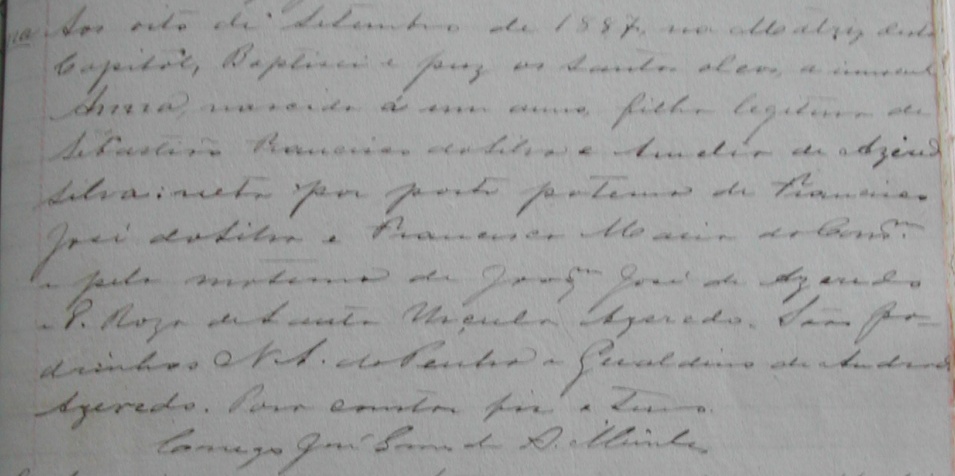 na Aos oito de Setembro de 1887, na Matriz desta
Capital, Baptisei e puz os santos oleos, a innocente
Anna, nascida á um anno, filha legitima de
Sebastião Francisco da Silva e Amelia de Azeredo
Silva: neta por parte paterna de Francisco
José da Silva e Francisca Maria da Conc.ᵐ
e pela materna de Joaq.ᵐ José de Azeredo
e D. Roza de Santa Urçula Azeredo. São Pa-
drinhos N. S. da Penha e Geraldino de Andrade
Azeredo. Para constar fiz o Termo.
Conego José Gomes de